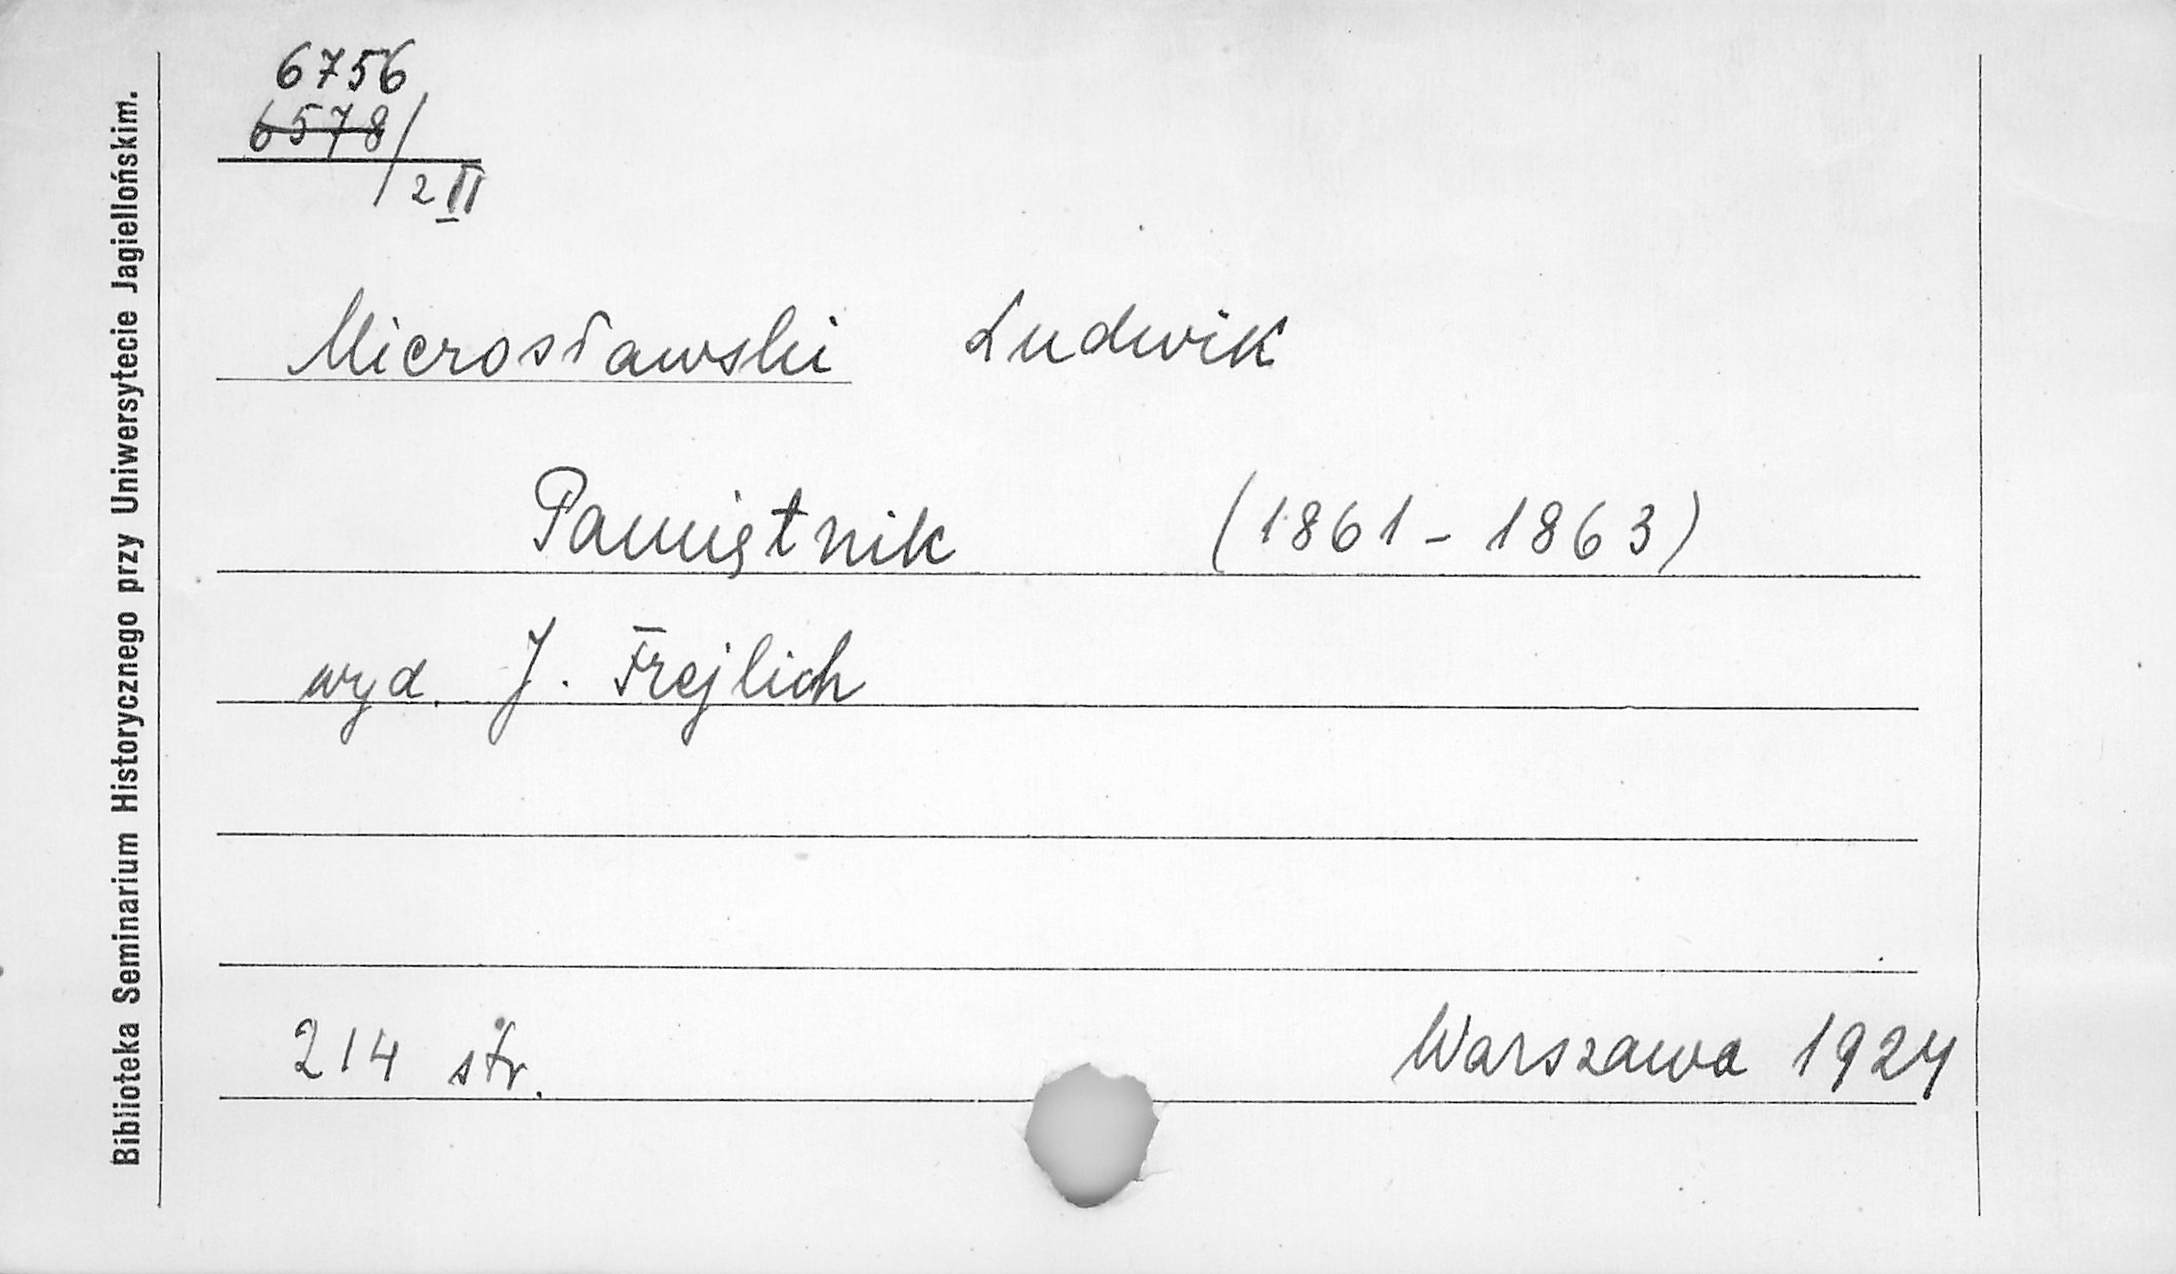 Biblioteka Seminarium Historycznego przy Uniwersytecie Jagiellońskim.
6756
6578/
2 II
Mierosławski Ludwik
Pamiętnik (1861 - 1863)
wyd. J. Frejlich
214 str. Warszawa 1924